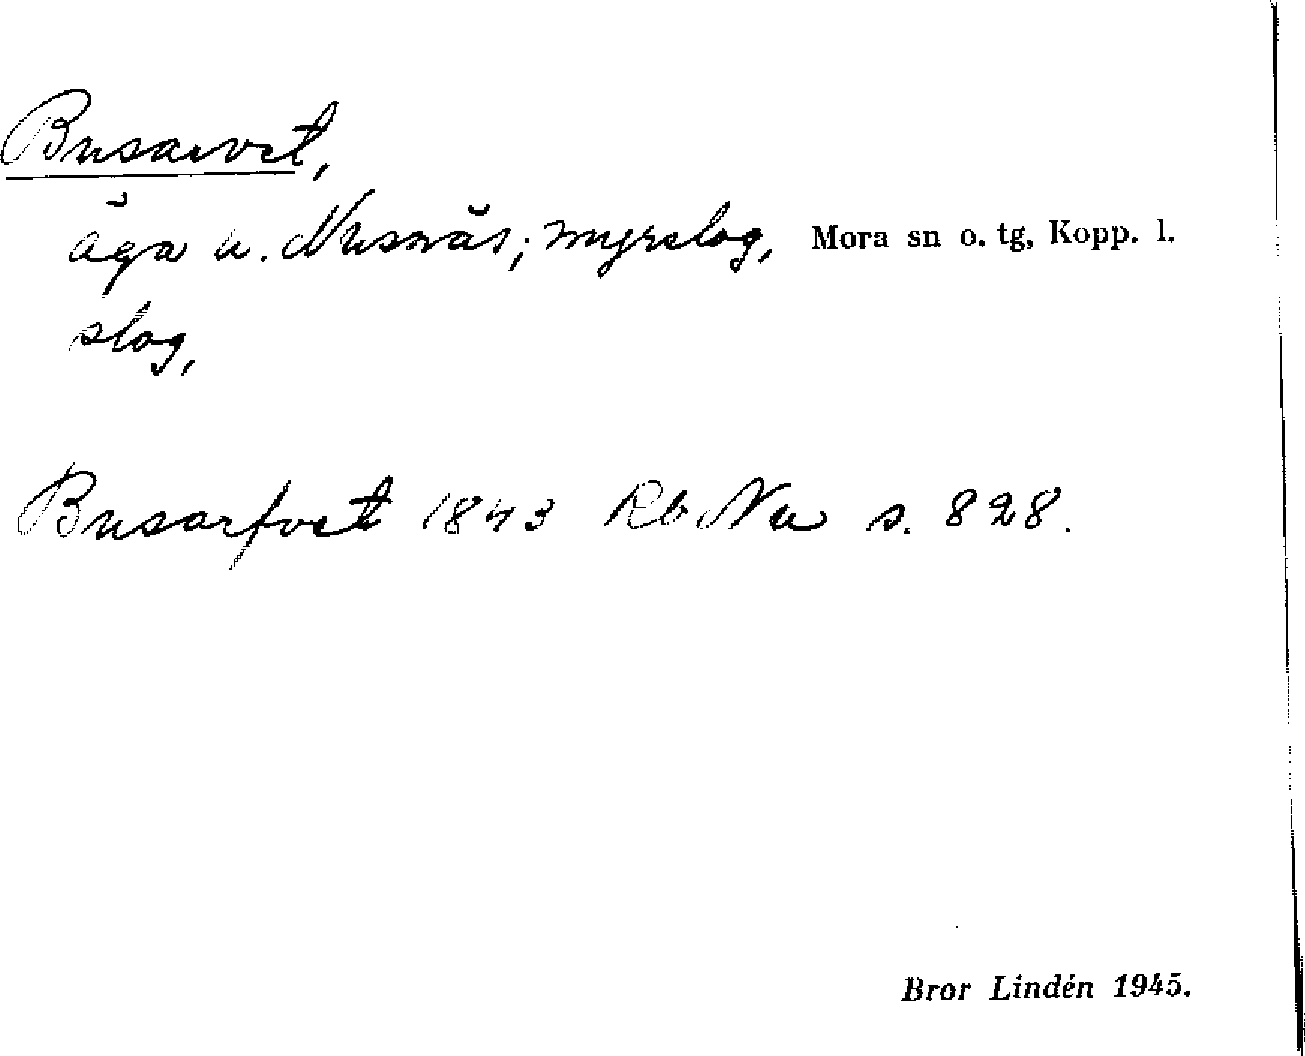 Busarvet,
äga u. Nusnäs; myrslog, Mora sn o. tg, Kopp. l.
slog,
Busarfvet 1843 Rb Nu s. 828.
Bror Lindén 1945.